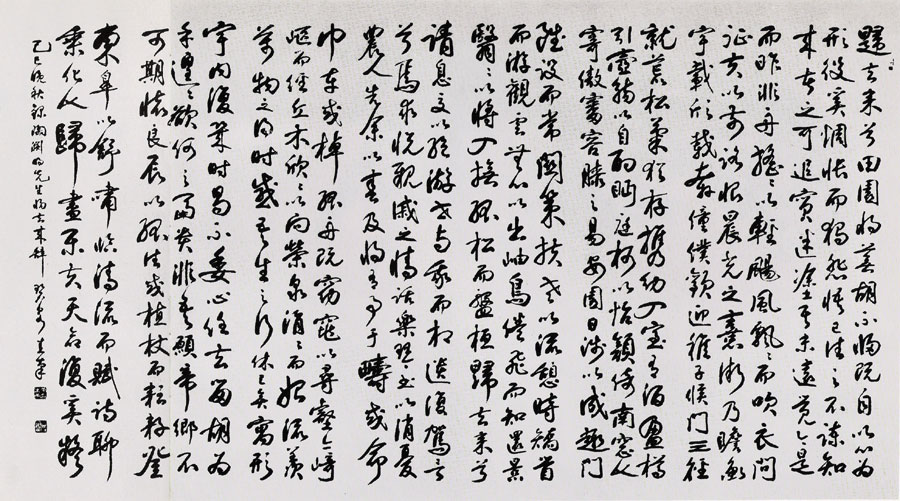 歸去來兮田園將蕪胡不歸既自以心為
形役奚惆悵而獨悲悟已往之不諫知
來者之可追實迷途其未遠覺今是
而昨非舟搖々以輕颺風飄々而吹衣問
征夫以前路恨晨光之熹微乃瞻衡
宇載欣載奔僮僕歡迎稚子候門三徑
就荒松菊猶存攜幼入室有酒盈樽
引壺觴以自酌眄庭柯以怡顏倚南窗以
寄傲審容膝之易安園日涉以成趣門
雖設而常關策扶老以流憩時矯首
而游觀雲無心以出岫鳥倦飛而知還景
翳々以將入撫孤松而盤桓歸去來兮
請息交以絕游世與我而相遺復駕言
兮焉求悅親戚之情話樂琴書以消憂
農人告余以春及將有事于疇或命
巾車或棹孤舟既窈窕以尋壑亦崎
嶇而經丘木欣々以向榮泉涓々而始流羨
萬物之得時感吾生之行休已矣寓形
宇內復幾時曷不委心任去留胡為
乎遑々欲何之富貴非吾願帝鄉不
可期懷良辰以孤往或植杖而耘耔登
東皋以舒嘯臨清流而賦詩聊
乘化以歸盡樂夫天命復奚疑
己巳晚秋錄陶淵明先生歸去來辭